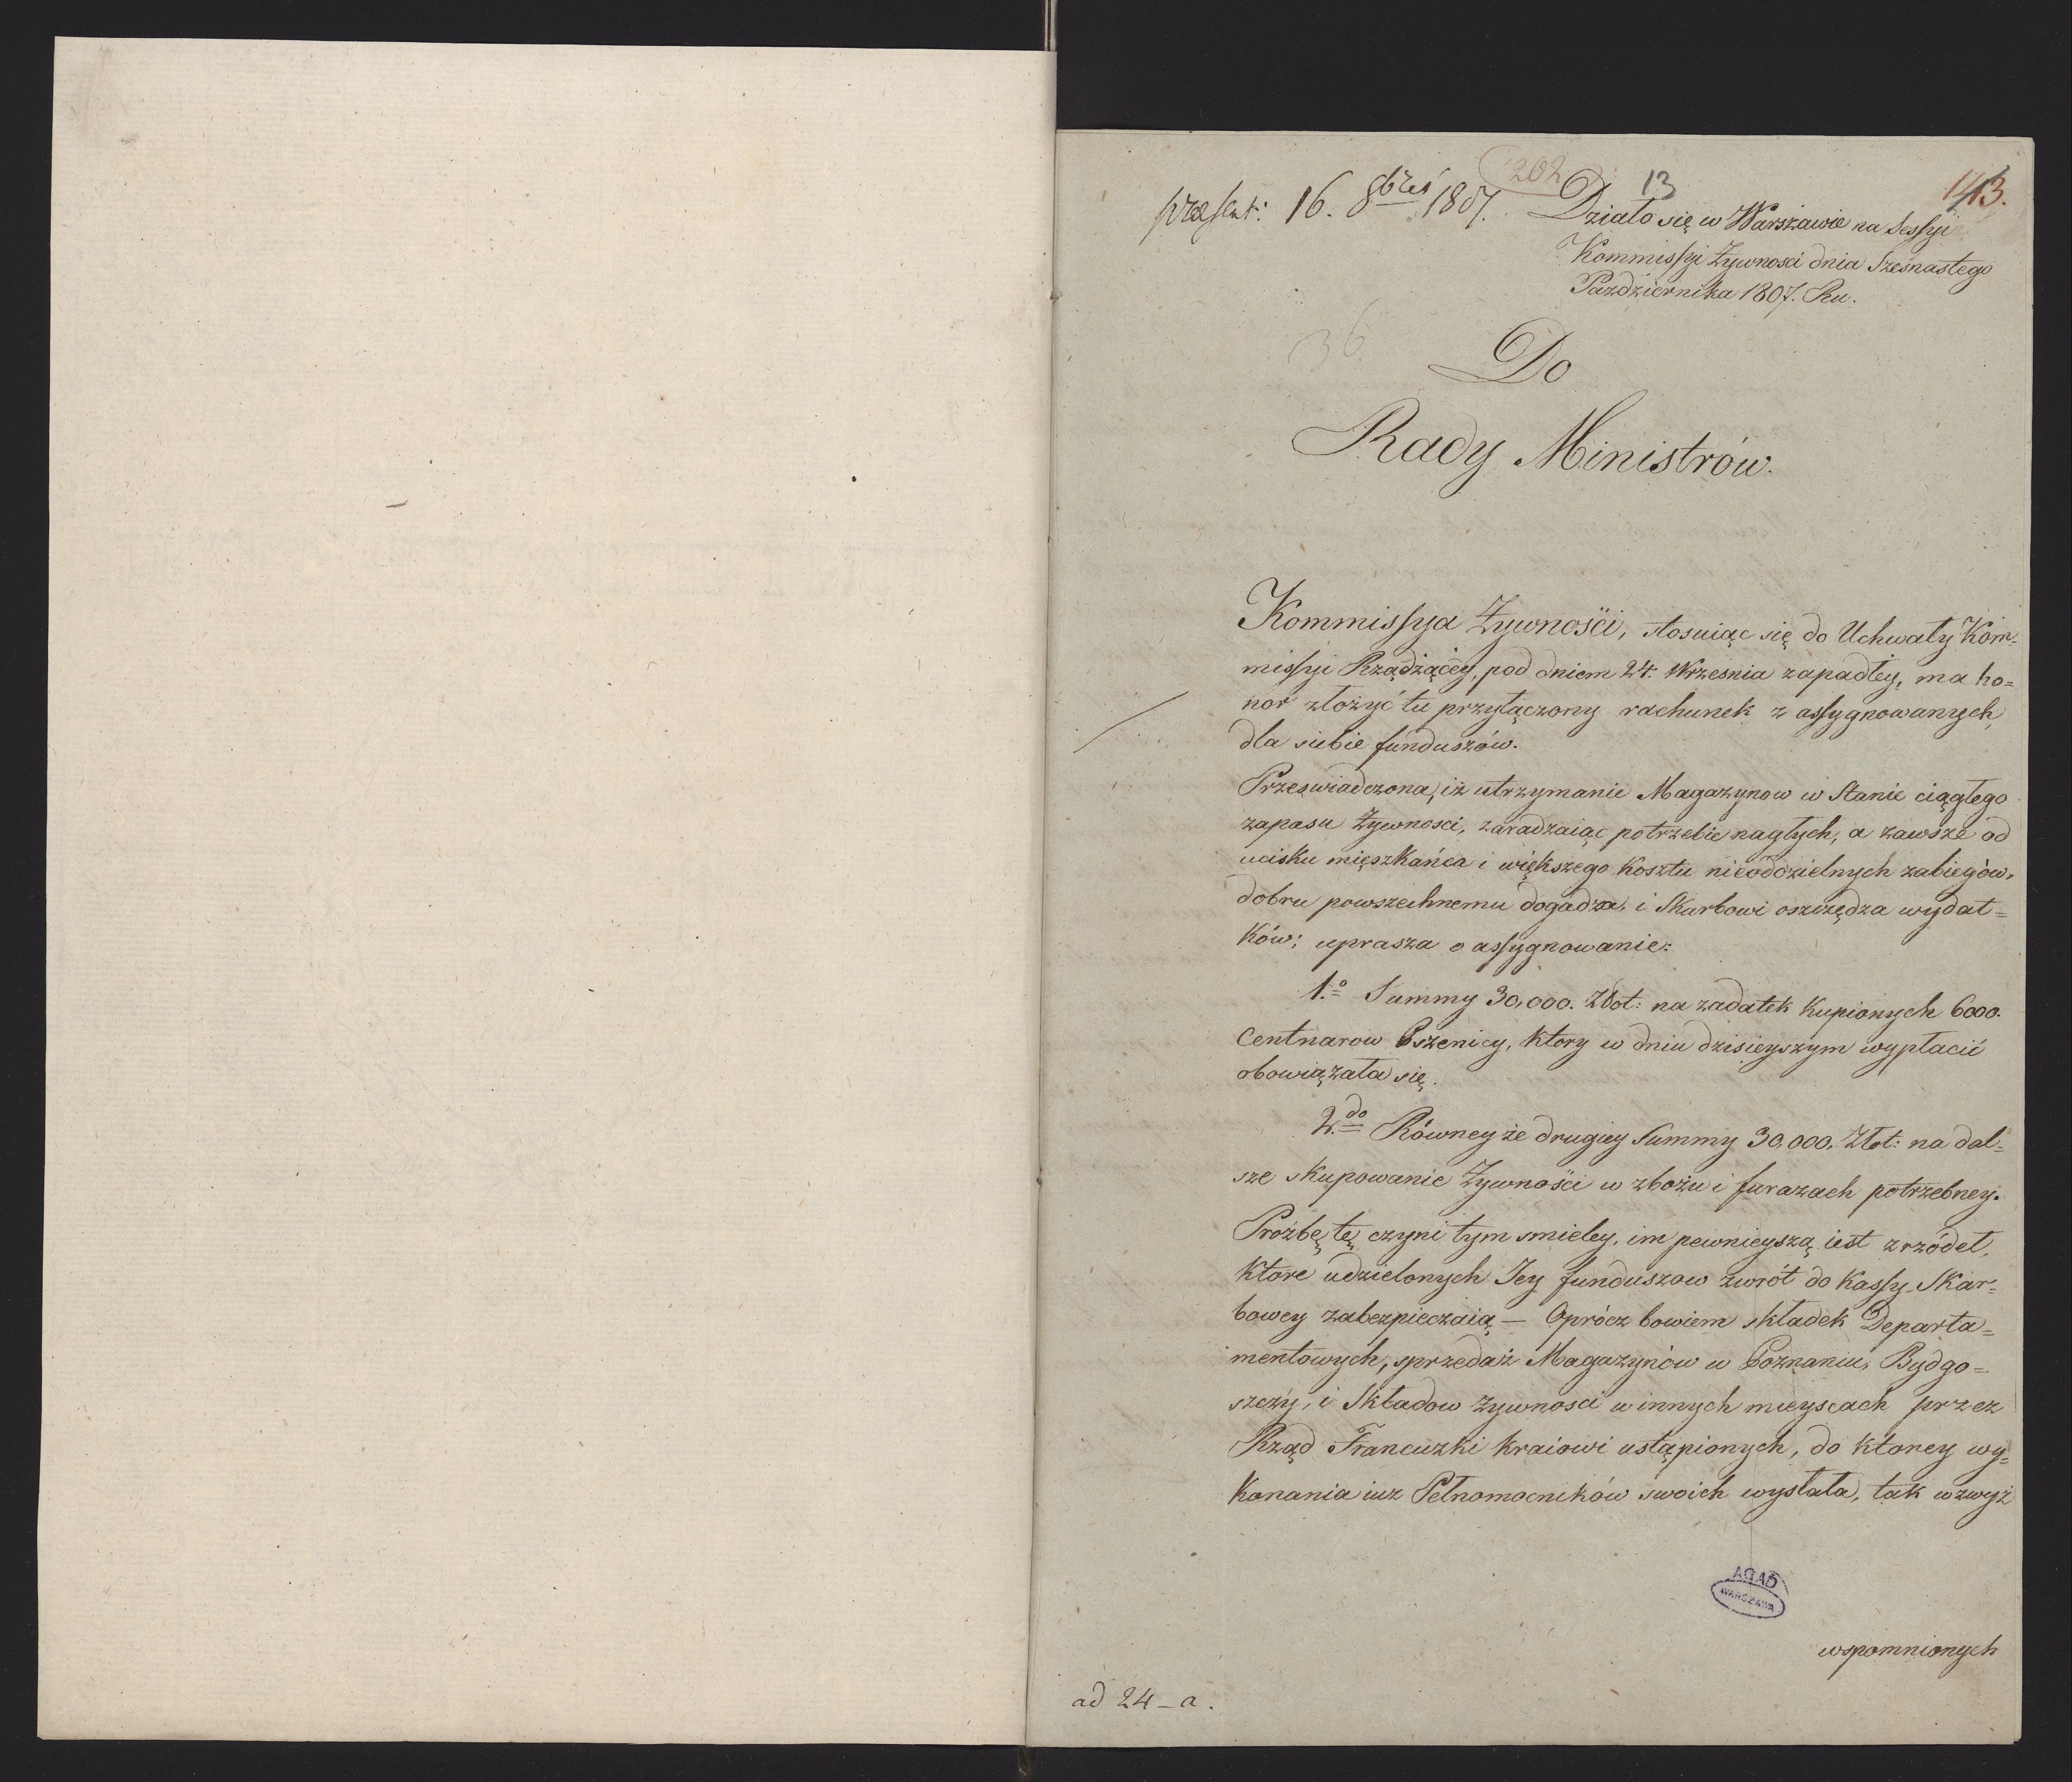 202
præsent: 16. 8bris 1807.
13
143.
Działo się w Warszawie na Sessyi
Kommissyi Żywnosci dnia Szesnastego
Pazdziernika 1807. Ru.
36
Do
Rady Ministrów.
Kommissya Żywności, stosuiąc się do Uchwały Kom-
missyi Rządzącey, pod dniem 24. Wrzesnia zapadłey, ma ho=
nor złożyć tu przyłączony rachunek z assygnowanych
dla siebie funduszów.
Przeswiadczona, iż utrzymanie Magazynow w Stanie ciągłego
zapasu Żywnosci, zaradzaiąc potrzebie nagłych, a zawsze od
ucisku mięszkańca i większego kosztu nieoddzielnych zabiegów,
dobru powszechnemu dogadza, i Skarbowi oszczędza wydat=
ków; uprasza o assygnowanie:
1.o Summy 30,000. Złot: na zadatek kupionych 6000.
Centnarow Pszenicy, ktory w dniu dzisieyszym wypłacić
obowiązała się.
2.do Równey że drugiey Summy 30,000. Złot: na dal=
sze skupowanie Żywności w zbożu i furazach potrzebney.
Prozbę tę czyni tym smieley, im pewnieyszą iest zrzódeł,
ktore udzielonych Jey funduszow zwrót do Kassy Skar=
bowey zabezpieczaią — Oprócz bowiem składek Departa=
mentowych, sprzedaż Magazynów w Poznaniu, Bydgo=
szczy, i Składow żywnosci w innych mieyscach przez
Rząd Francuzki kraiowi ustąpionych, do ktorey wy=
konania iuz Pełnomocników swoich wysłała, tak wzwyż
AGAD
WARSZAWA
wspomnionych
ad 24 - a.